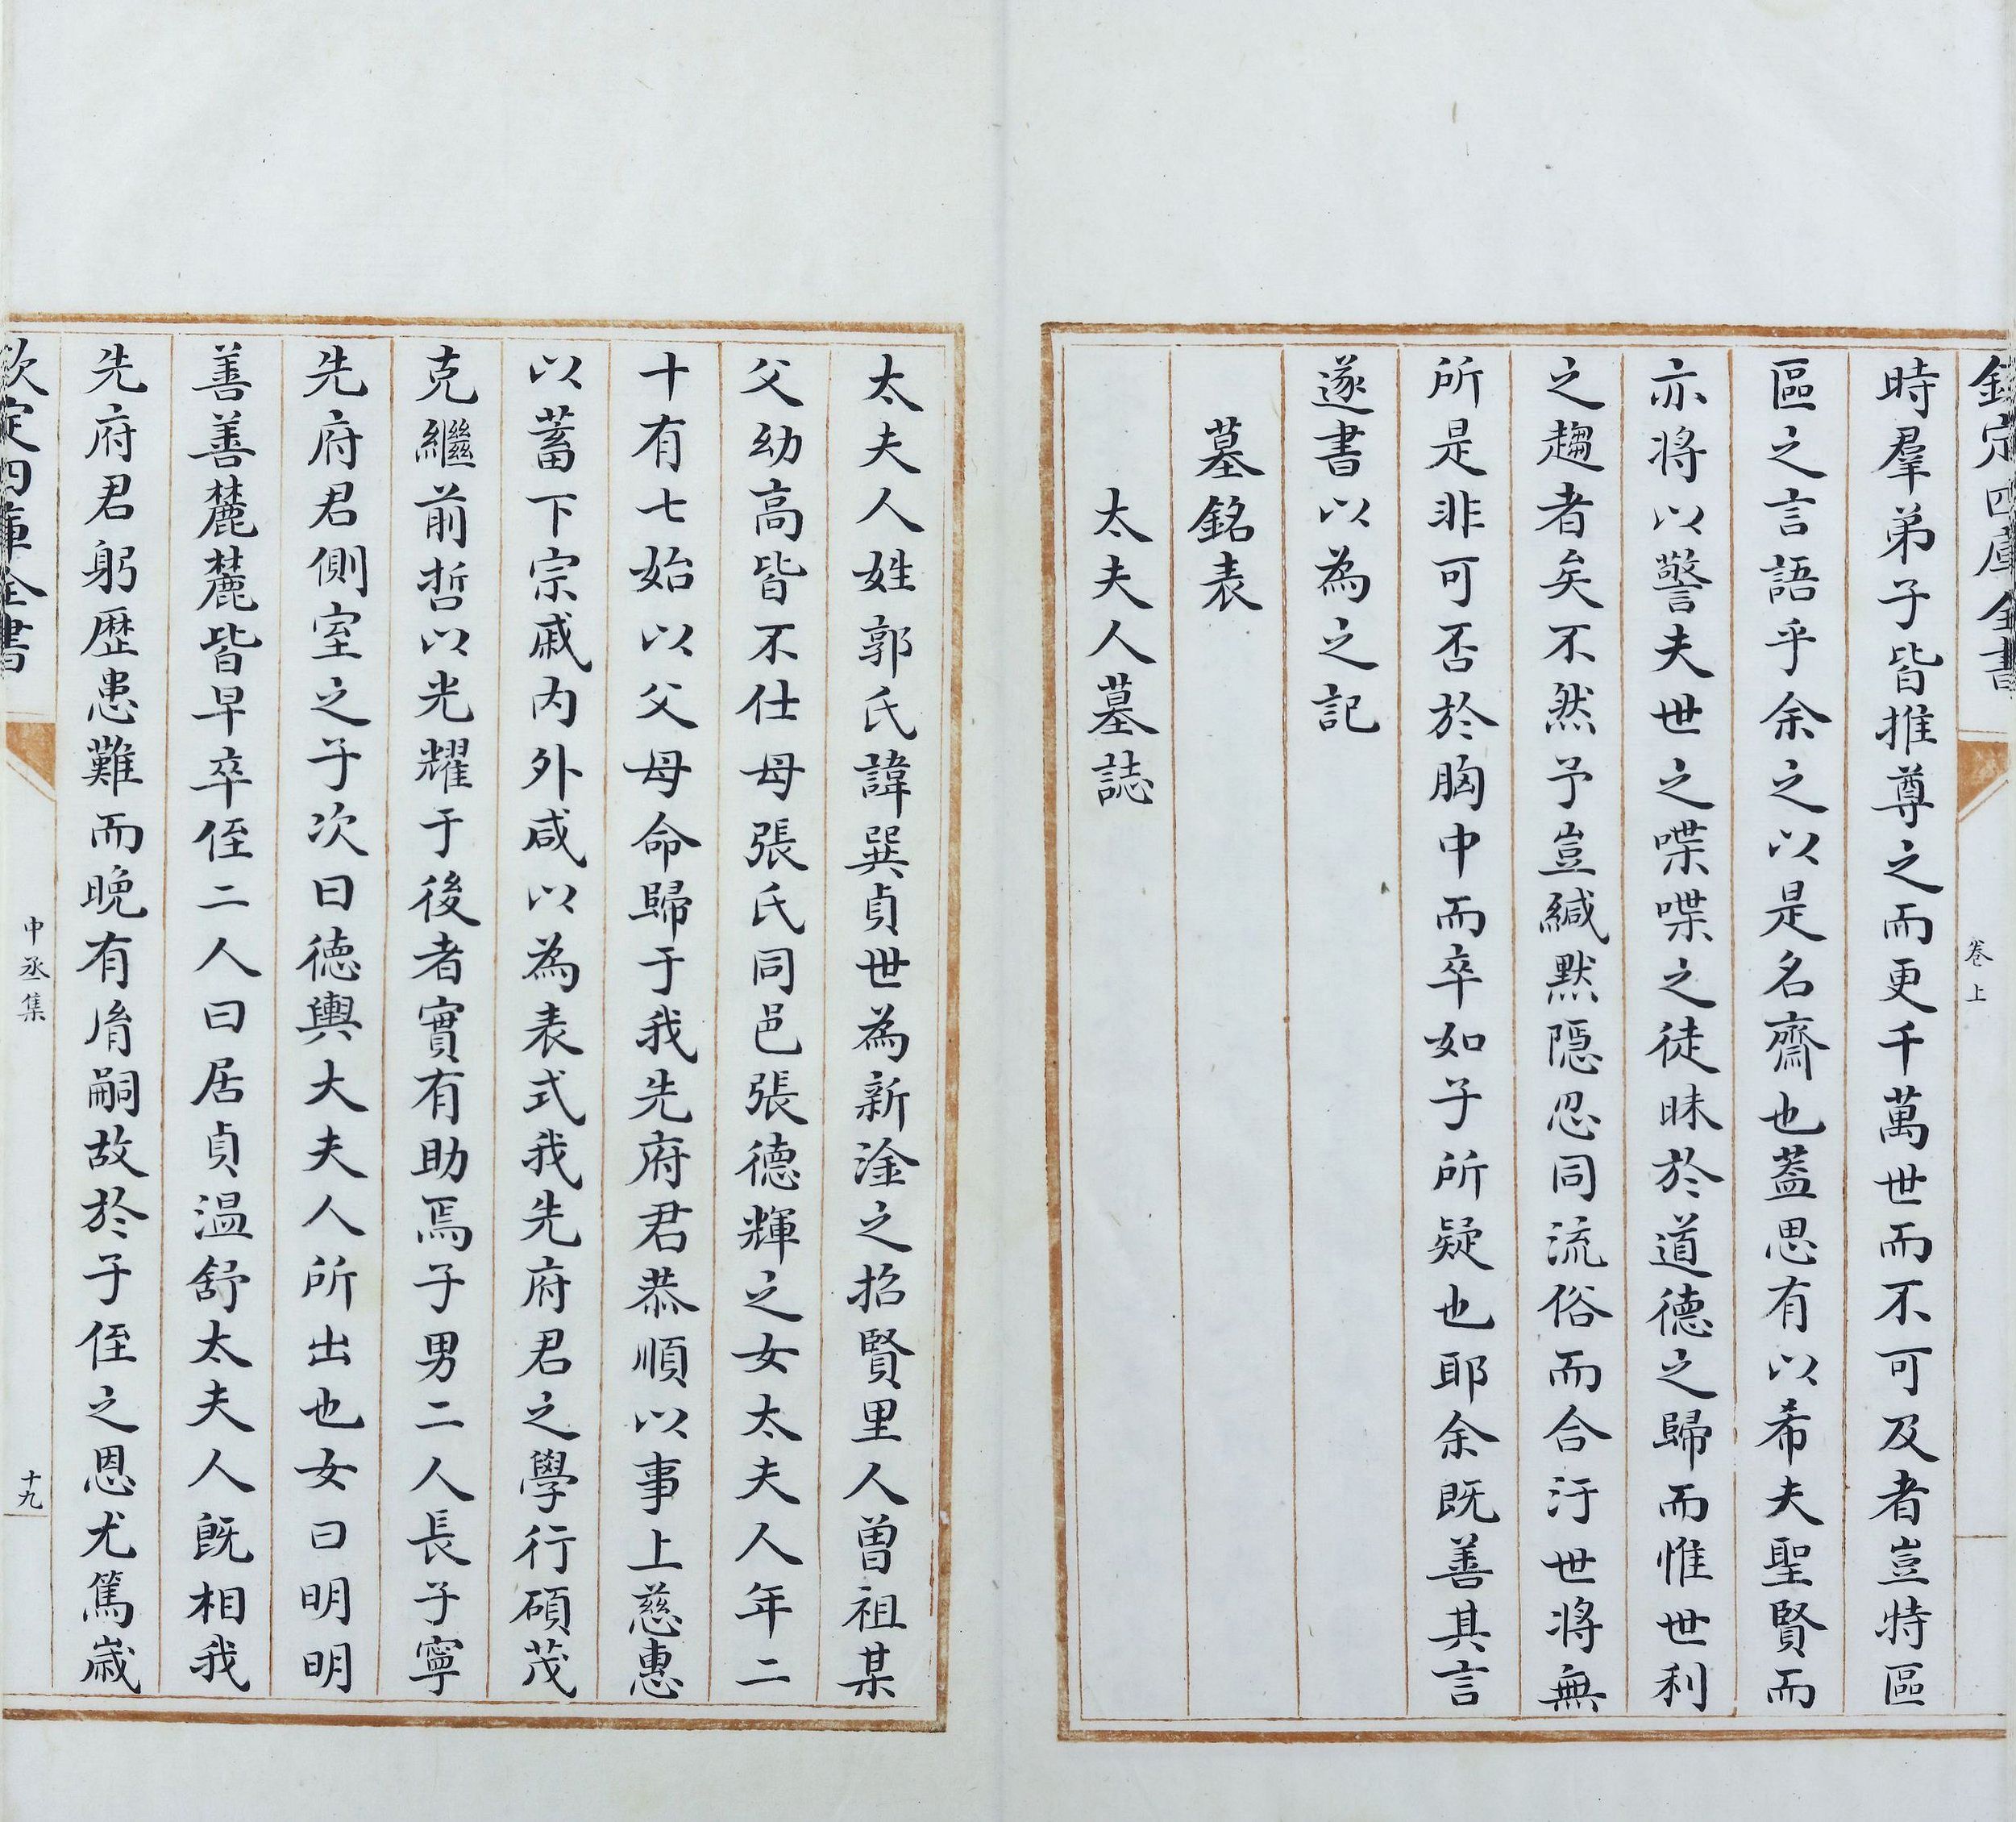 欽定四庫全書
卷上
時羣弟子皆推尊之而更千萬世而不可及者豈特區
區之言語乎余之以是名齋也葢思有以希夫聖賢而
亦將以警夫世之喋喋之徒昧於道德之歸而惟世利
之趨者矣不然予豈緘默隱忍同流俗而合汙世將無
所是非可否於胸中而卒如子所疑也耶余既善其言
遂書以為之記
墓銘表
太夫人墓誌
太夫人姓郭氏諱巽貞世為新淦之招賢里人曾祖某
父幼高皆不仕母張氏同邑張德輝之女太夫人年二
十有七始以父母命歸于我先府君恭順以事上慈惠
以蓄下宗戚内外咸以為表式我先府君之學行碩茂
克繼前哲以光耀于後者實有助焉子男二人長子寧
先府君側室之子次曰德輿大夫人所出也女曰明明
善善麓麓皆早卒侄二人曰居貞温舒太夫人既相我
先府君躬歴患難而晚有脩嗣故於子侄之恩尤篤嵗
欽定四庫全書
中丞集
十九